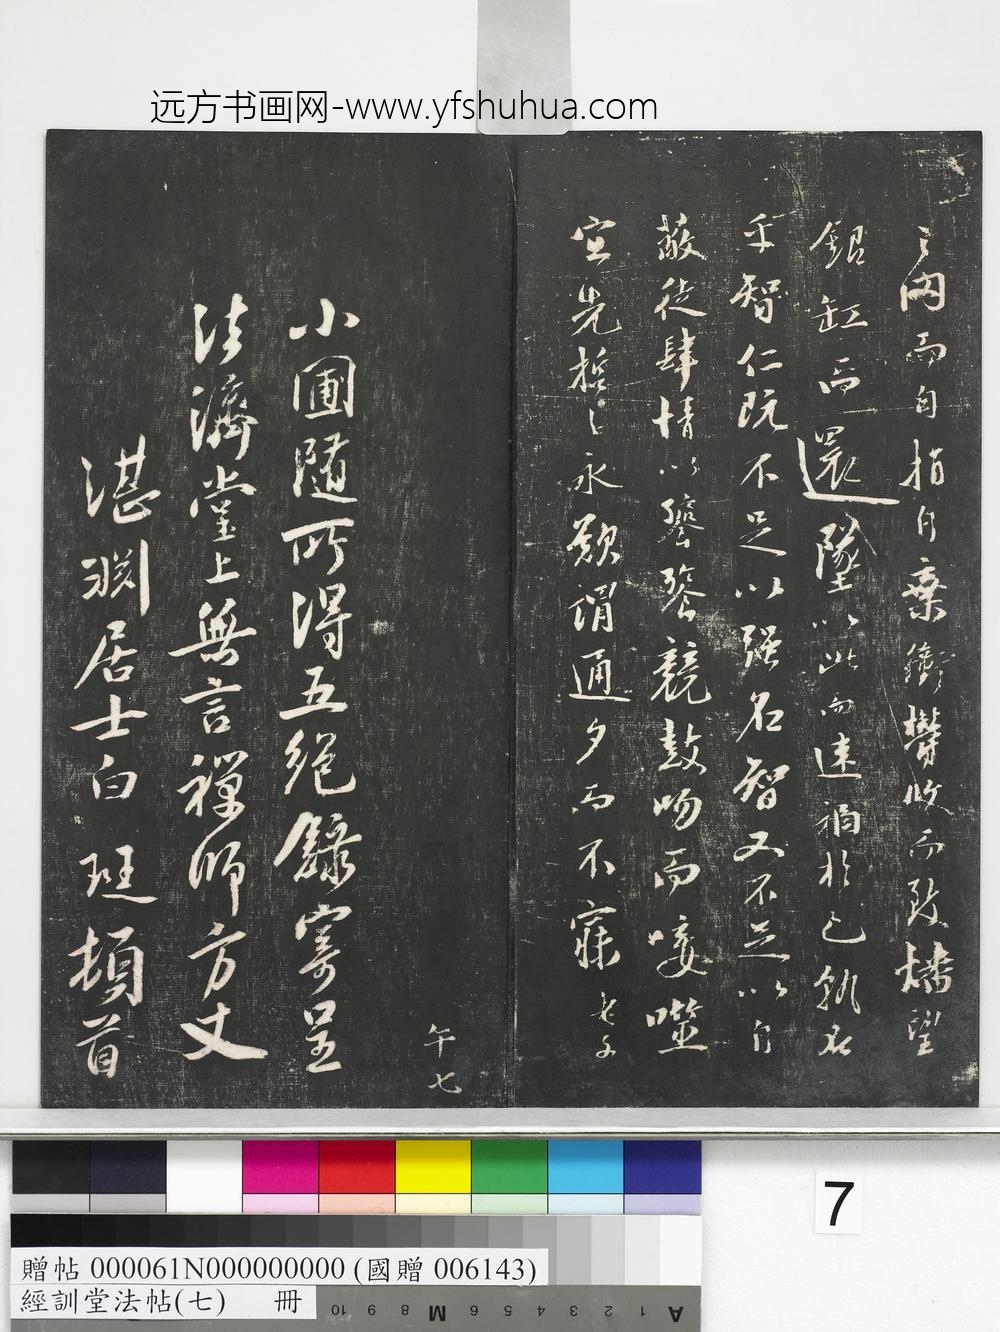 远方书画网-www.yfshuhua.com
之內而自指自棄銜櫫收而致旛望
銀缸而還墜以此而速禍於己孰名
乎智仁既不足以强名智又不足以自
蔽徒肆情以謷謷競鼓吻而嗷噬
宜先哲之永歎謂通夕而不寐
老子
小圃隨所得五絕錄寄呈
法濟堂上無言禪師方丈
湛淵居士白珽頓首
午七
7
贈帖 000061N000000000 (國贈 006143)
經訓堂法帖(七) 冊
10 9 8 M 6 5 4 3 2 1 A